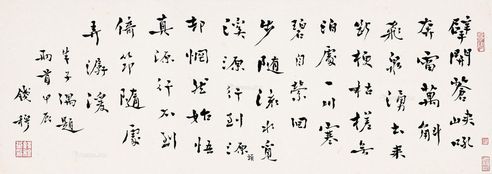 擘開蒼峽吼
奔雷萬斛
飛泉湧出來
斷梗枯槎無
泊處一川寒
碧自縈回
步隨流水覓
溪源行到源頭
却惘然始悟
真源行不到
倚筇隨處
弄潺湲
朱子偶題
兩首甲辰
錢穆